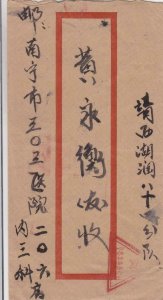 靖西湖润八十一分队
黄永衡收
邮：南宁市三〇三医院二〇六房
内三科